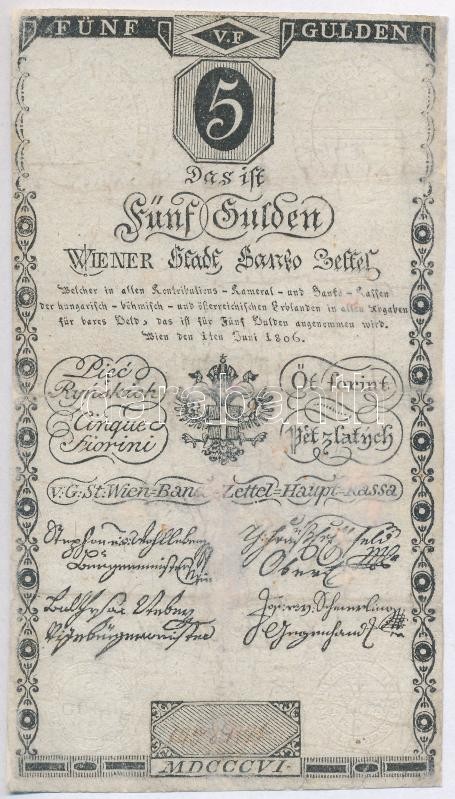 FÜNF V.F GULDEN
5
Das ist
Fünf Gulden
WIENER Stadt Banko Zettel
Welcher in allen Kontributions-Kameral-und Banko-Kassen
der hungarisch-böhmisch-und österreichischen Erblanden in allen Abgaben
für bares Geld, das ist für Fünf Gulden angenommen wird.
Wien den 1ten Juni 1806.
Pięć
Ryńskich
Cinque
Fiorini
Öt forint
Pět zlatých
darabanth
V:G:St:Wien=Banc Zettel=Haupt=Kassa
Stephan
Bürgermeister
Ober
Vizebürgermeister
Gegenhand
MDCCCVI